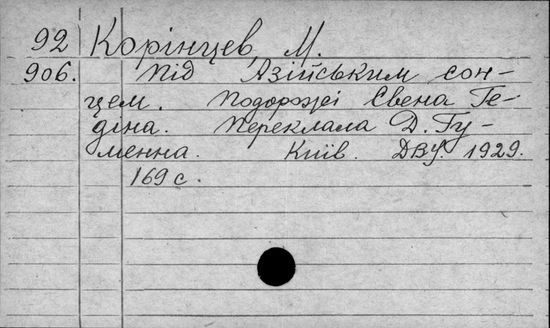 92 Корінцев, М.
906. Під Азійським сон-
цем. Подорожі Свена Ге-
діна. Переклала Д. Гу-
менна. Київ. ДВУ. 1929.
169 с.